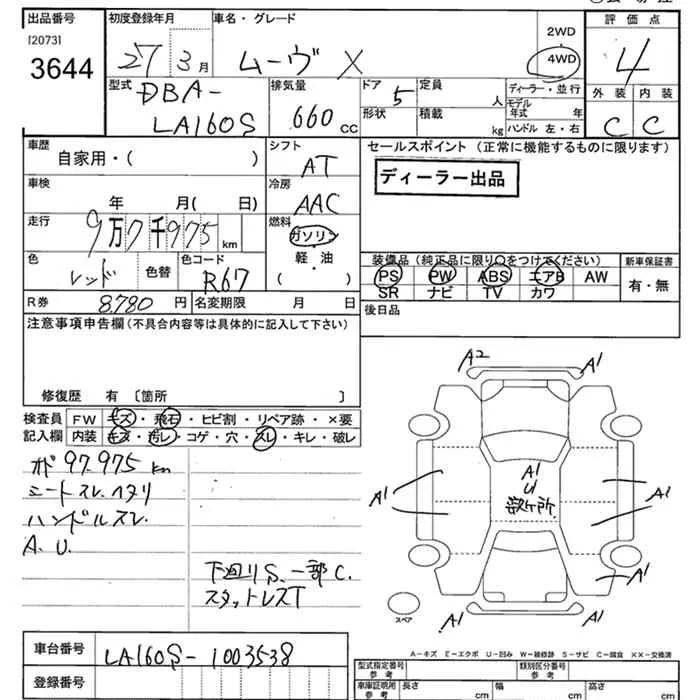 出品番号 初度登録年月 車名・グレード 2WD 評価点
[2073] 27 3月 ムーヴ X 4WD 4
3644 型式 排気量 ドア 定員 ディーラー・並行 外装 内装
DBA- 5 人 モデル年式 年
LA160S 660cc 形状 積載 kg ハンドル 左・右 C C
車歴 シフト セールスポイント (正常に機能するものに限ります)
自家用・( ) AT ディーラー出品
車検 冷房
年 月( 日) AAC
走行 燃料
9万7千975km ガソリン
色 色コード 軽・油 装備品(純正品に限り○をつけてください) 新車保証書
レッド 色替 R67 ( ) PS PW ABS エアB AW 有・無
SR ナビ TV カワ
R券 8,780円 名変期限 月 日 後日品
注意事項申告欄(不具合内容等は具体的に記入して下さい)
修復歴 有 〔箇所 〕
検査員 FW キズ・飛石・ヒビ割・リペア跡・×要
記入欄 内装 キズ・汚レ・コゲ・穴・スレ・キレ・破レ
オド 97,975km
シートスレ、ヘタリ
ハンドルスレ、
A、U、
下廻りS、一部C、
スタットレスT
A2 A1
A1
U1
数ヶ所
A1 A1
A1
A1 A1
スペア
A-キズ E-エクボ U-凹み W-補修跡 S-サビ C-腐食 XX-交換済
車台番号 LA160S-1003538
登録番号
型式指定番号 参考 類別区分番号 参考
車庫証明用 参考 長さ cm 幅 cm 高さ cm